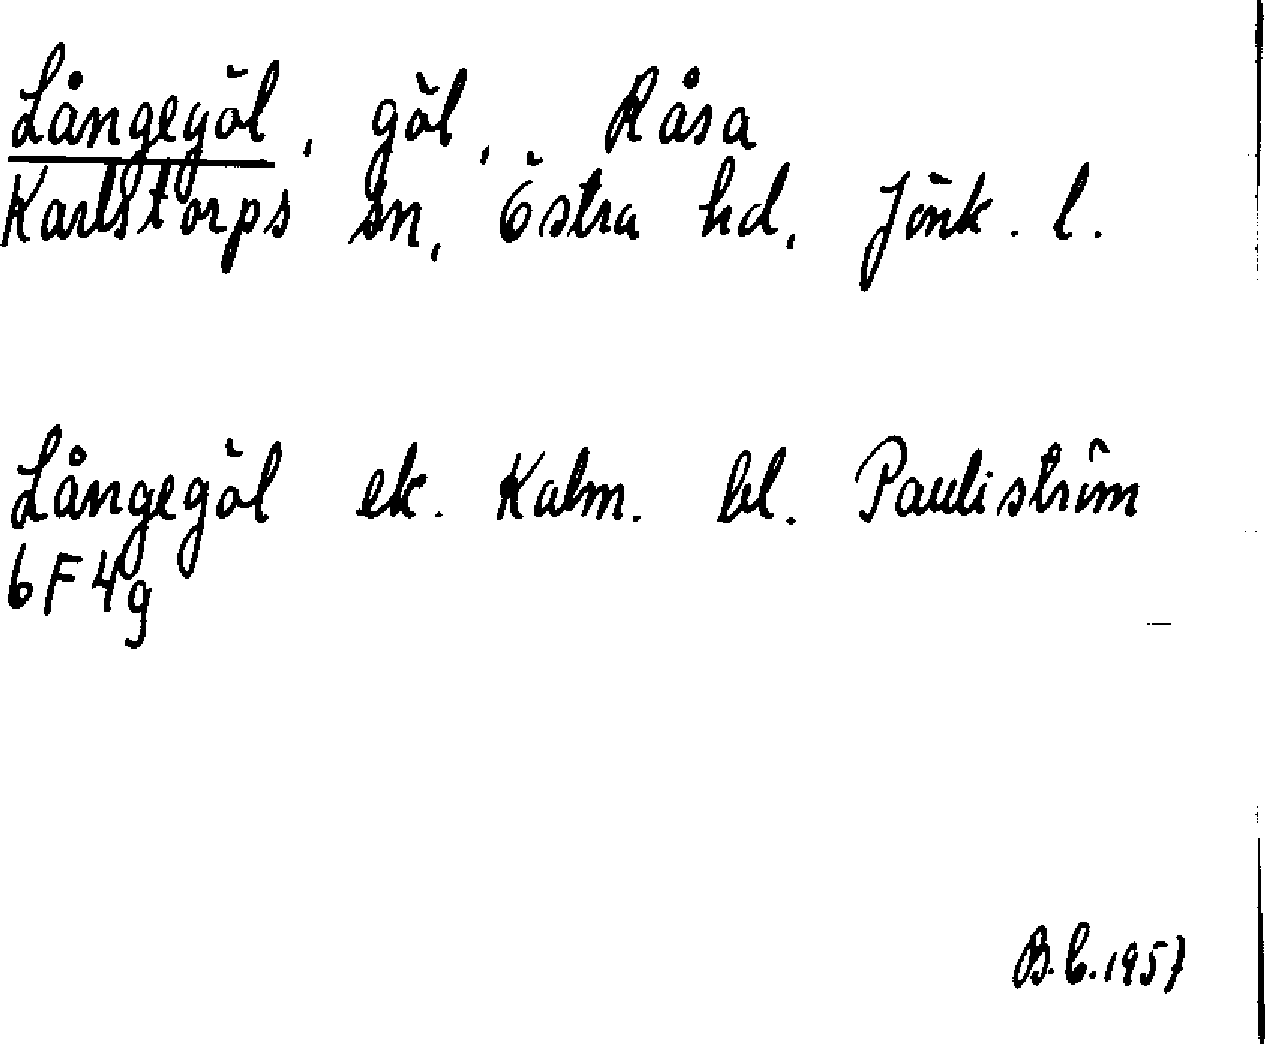 Långegöl, göl, Råsa
Karlstorps sn, Östra hd, Jönk. l.
Långegöl ek. Kalm. bl. Pauliström
6F4g
B.C. 1957